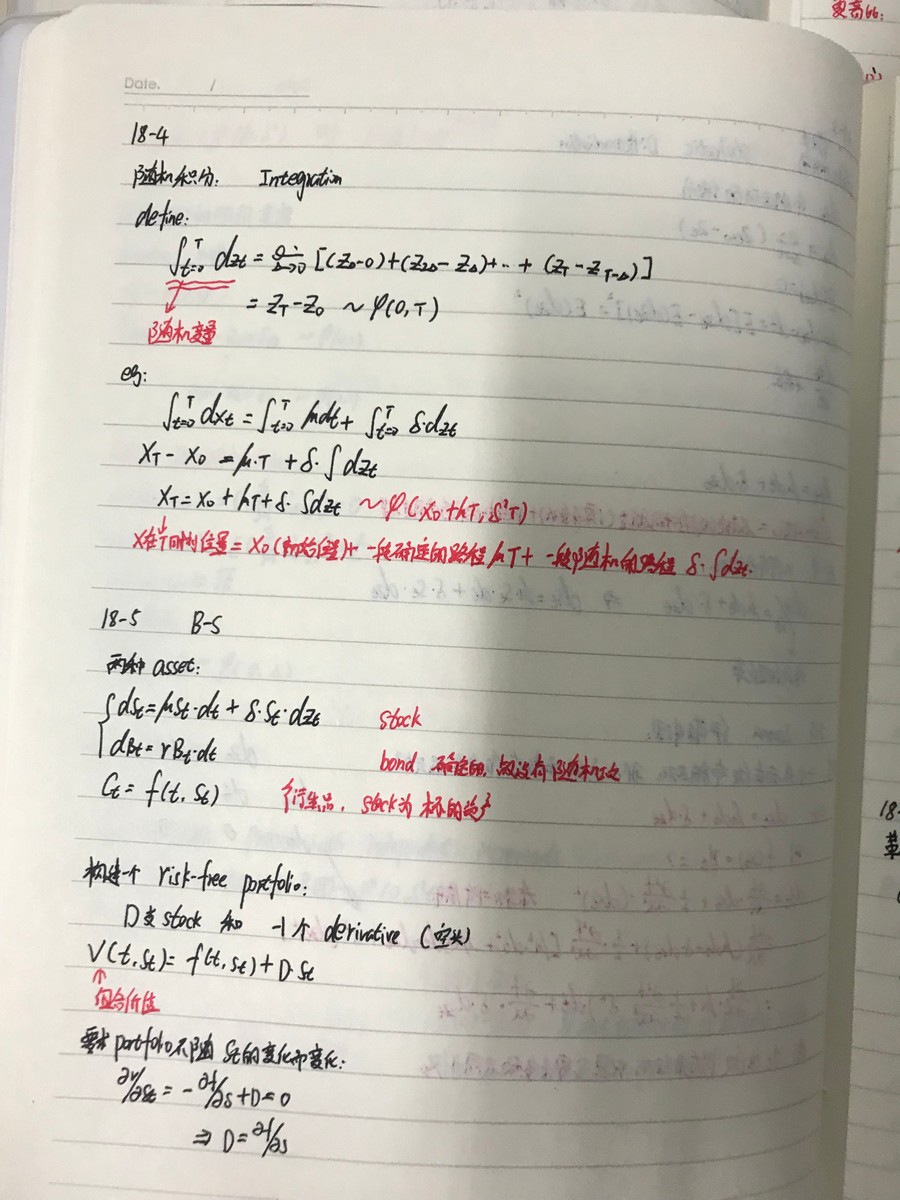 更高66:
Date. /
18-4
随机积分: Integration
define:
∫_{t=0}^{T} dzt = lim_{Δ→0} [(ZΔ-0)+(Z2Δ-ZΔ)+··+(ZT-ZT-Δ)]
= ZT-Z0 ~ φ(0,T)
随机变量
eg:
∫_{t=0}^{T} dxt = ∫_{t=0}^{T} μdt + ∫_{t=0}^{T} δ·dzt
XT - X0 = μ·T + δ·∫dzt
XT = X0 + μT + δ·∫dzt ~ φ(X0+μT, δ²T)
X在T时的位置 = X0(初始位置)+ 一段确定的路程μT + 一段随机的路程 δ·∫dzt.
18-5 B-S
两种 asset:
dSt = μSt·dt + δ·St·dzt stock
dBt = rBt·dt bond 确定的, 故没有随机次
Ct = f(t, St) 衍生品, stock为标的资产
构建一个 risk-free portfolio:
D支 stock 和 -1个 derivative (空头)
V(t, St) = f(t, St) + D·St
组合价值
要求 portfolio不随 St的变化而变化:
∂V/∂St = -∂f/∂S + D = 0
⇒ D = ∂f/∂S
18-